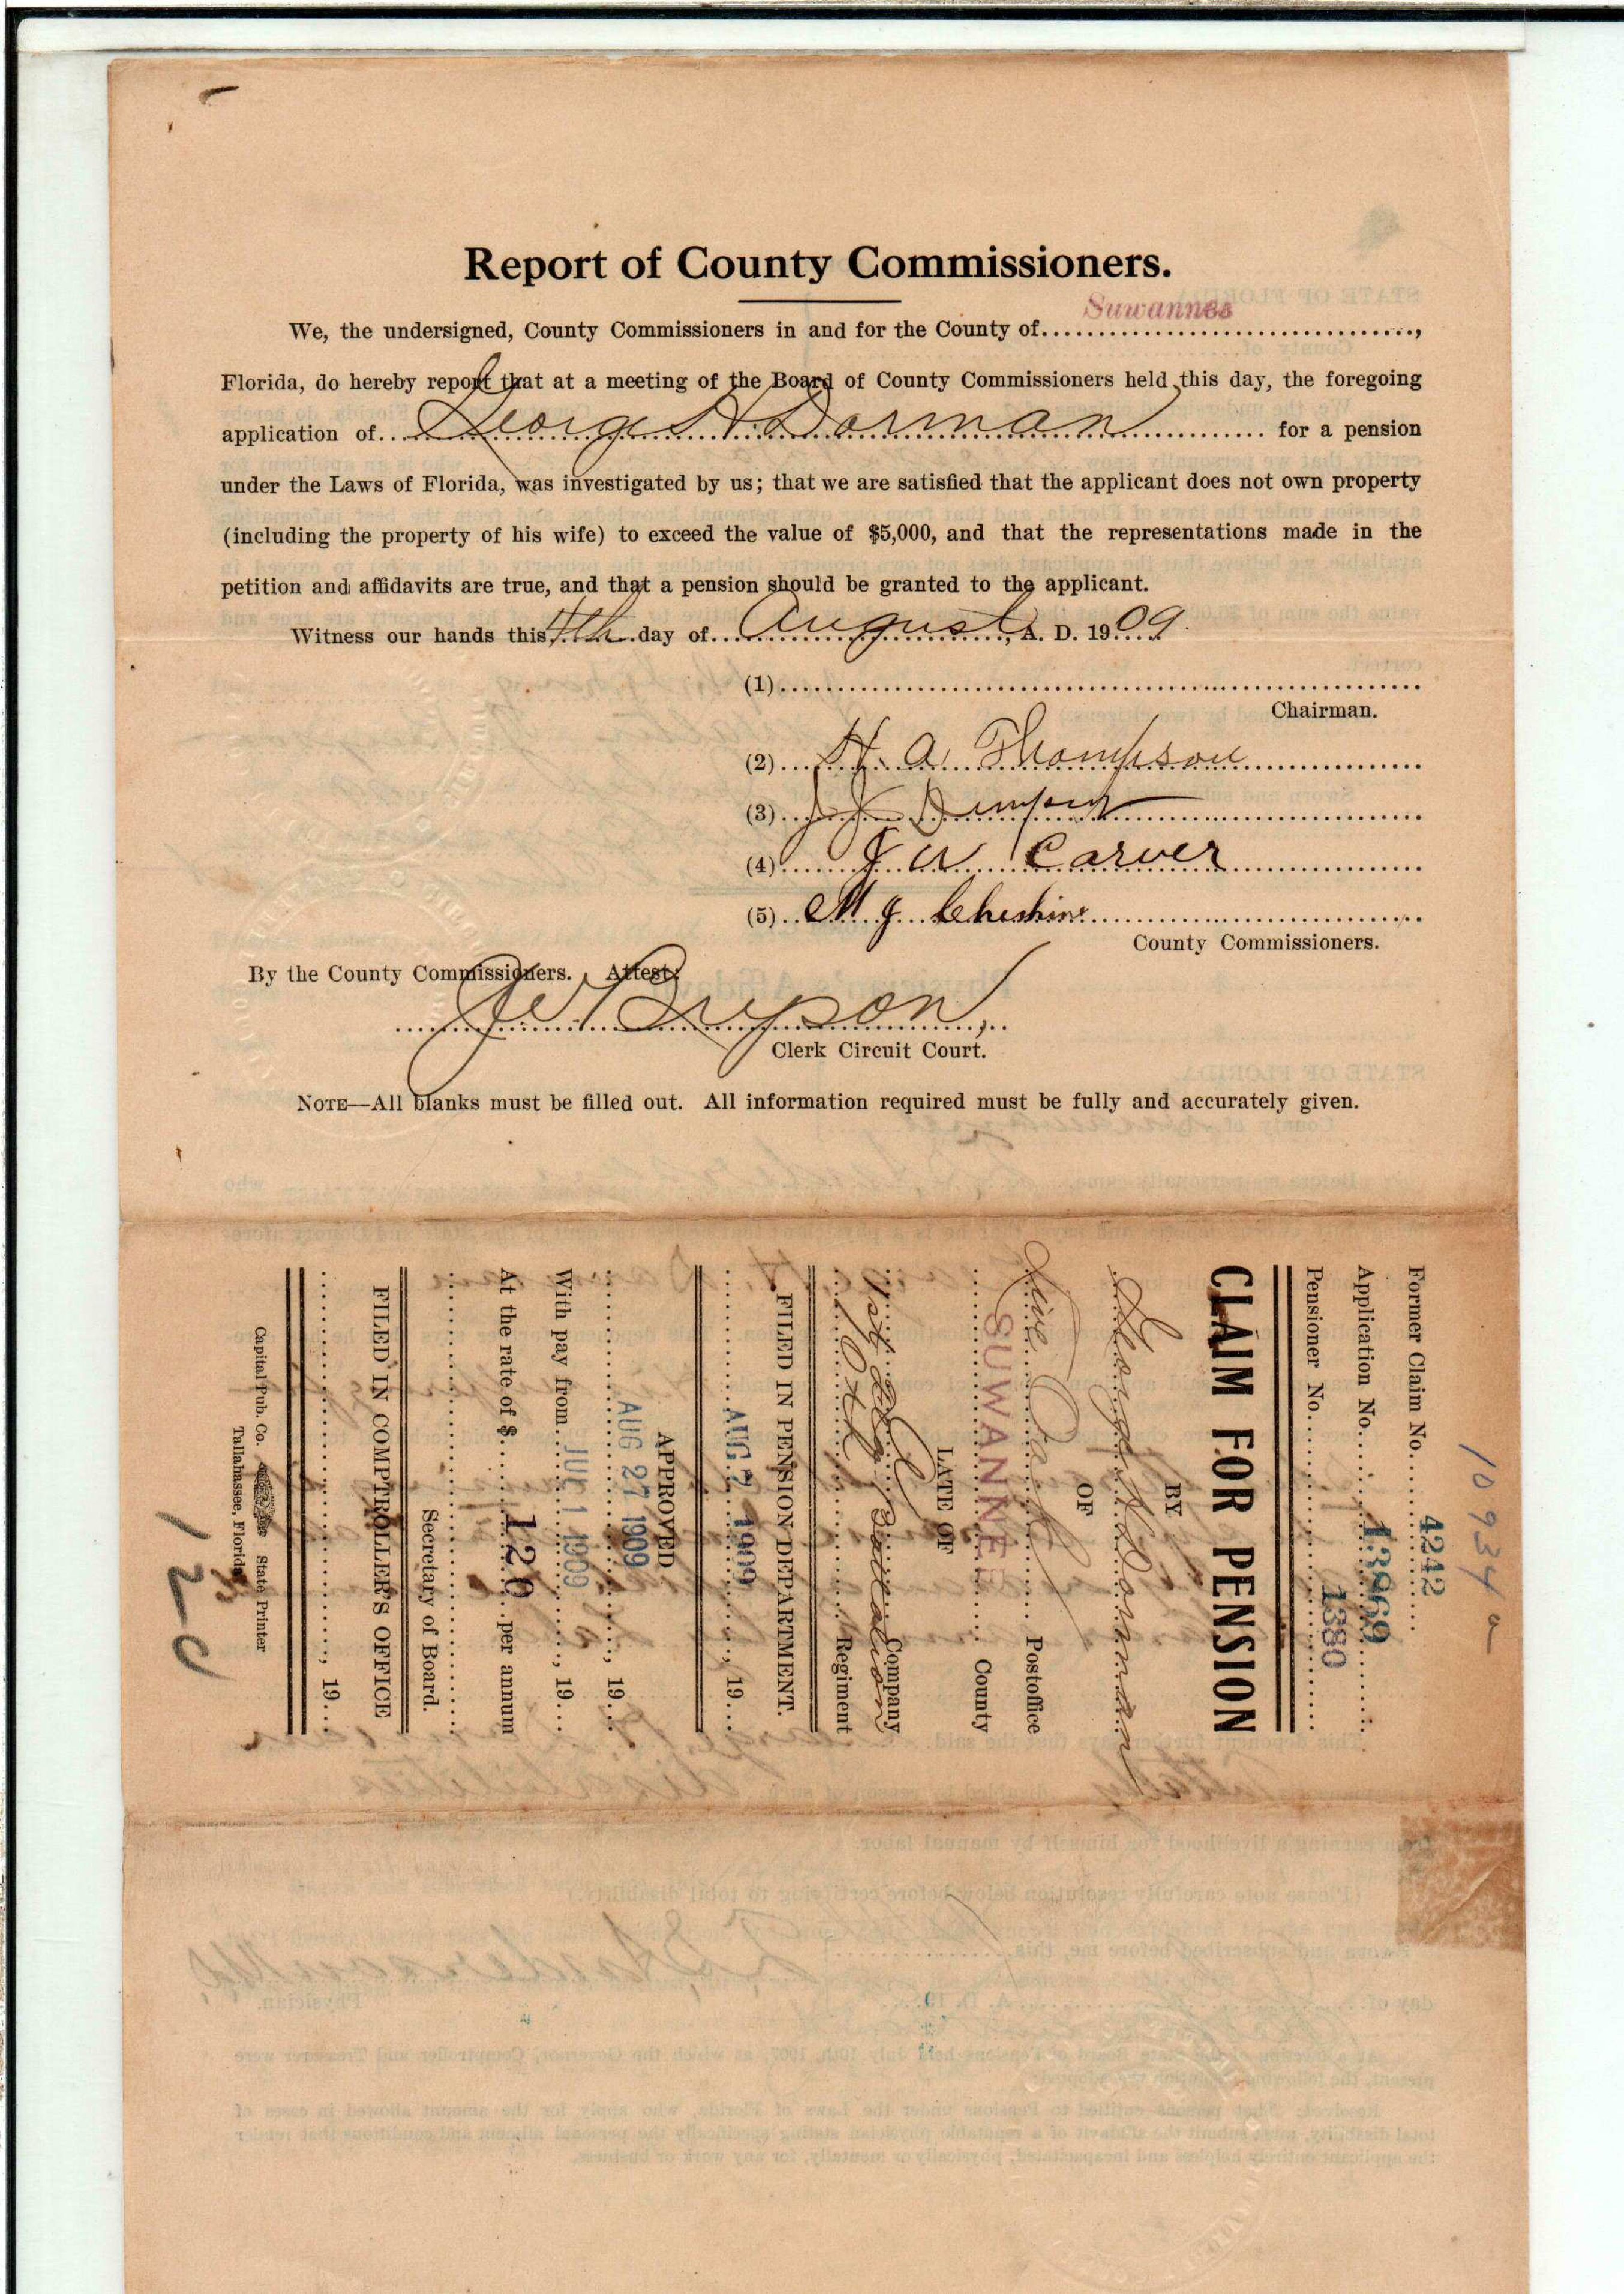 Report of County Commissioners.
We, the undersigned, County Commissioners in and for the County of Suwannee,
Florida, do hereby report that at a meeting of the Board of County Commissioners held this day, the foregoing
application of George H Dorman for a pension
under the Laws of Florida, was investigated by us; that we are satisfied that the applicant does not own property
(including the property of his wife) to exceed the value of $5,000, and that the representations made in the
petition and affidavits are true, and that a pension should be granted to the applicant.
Witness our hands this 4th day of August, A. D. 1909.
(1)
Chairman.
(2) H. A. Thompson
(3) J J Dempsey
(4) J W Carver
(5) M J Cheshire
County Commissioners.
By the County Commissioners. Attest:
J W Bryson,
Clerk Circuit Court.
NOTE—All blanks must be filled out. All information required must be fully and accurately given.
10934 a
Former Claim No. 4242
Application No. 13869
Pensioner No. 1380
CLAIM FOR PENSION
BY
George H Dorman
OF
Live Oak Postoffice
SUWANNEE County
LATE OF
1st Fla Battalion Company
10th Regiment
FILED IN PENSION DEPARTMENT.
AUG 7 1909, 19
APPROVED
AUG 27 1909, 19
With pay from JUL 1 1909, 19
At the rate of $ 120 per annum
Secretary of Board.
FILED IN COMPTROLLER'S OFFICE
, 19
Capital Pub. Co. State Printer
Tallahassee, Florida
120